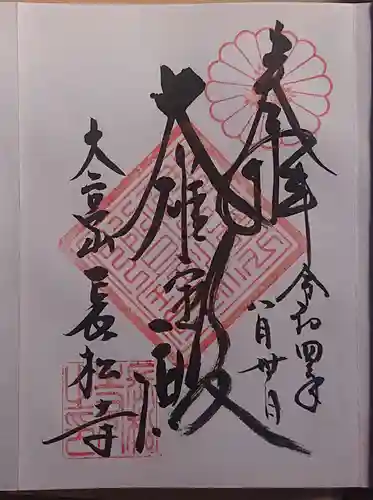 奉拝
令和四年
八月卅日
大雄宝殿
大高山
長松寺